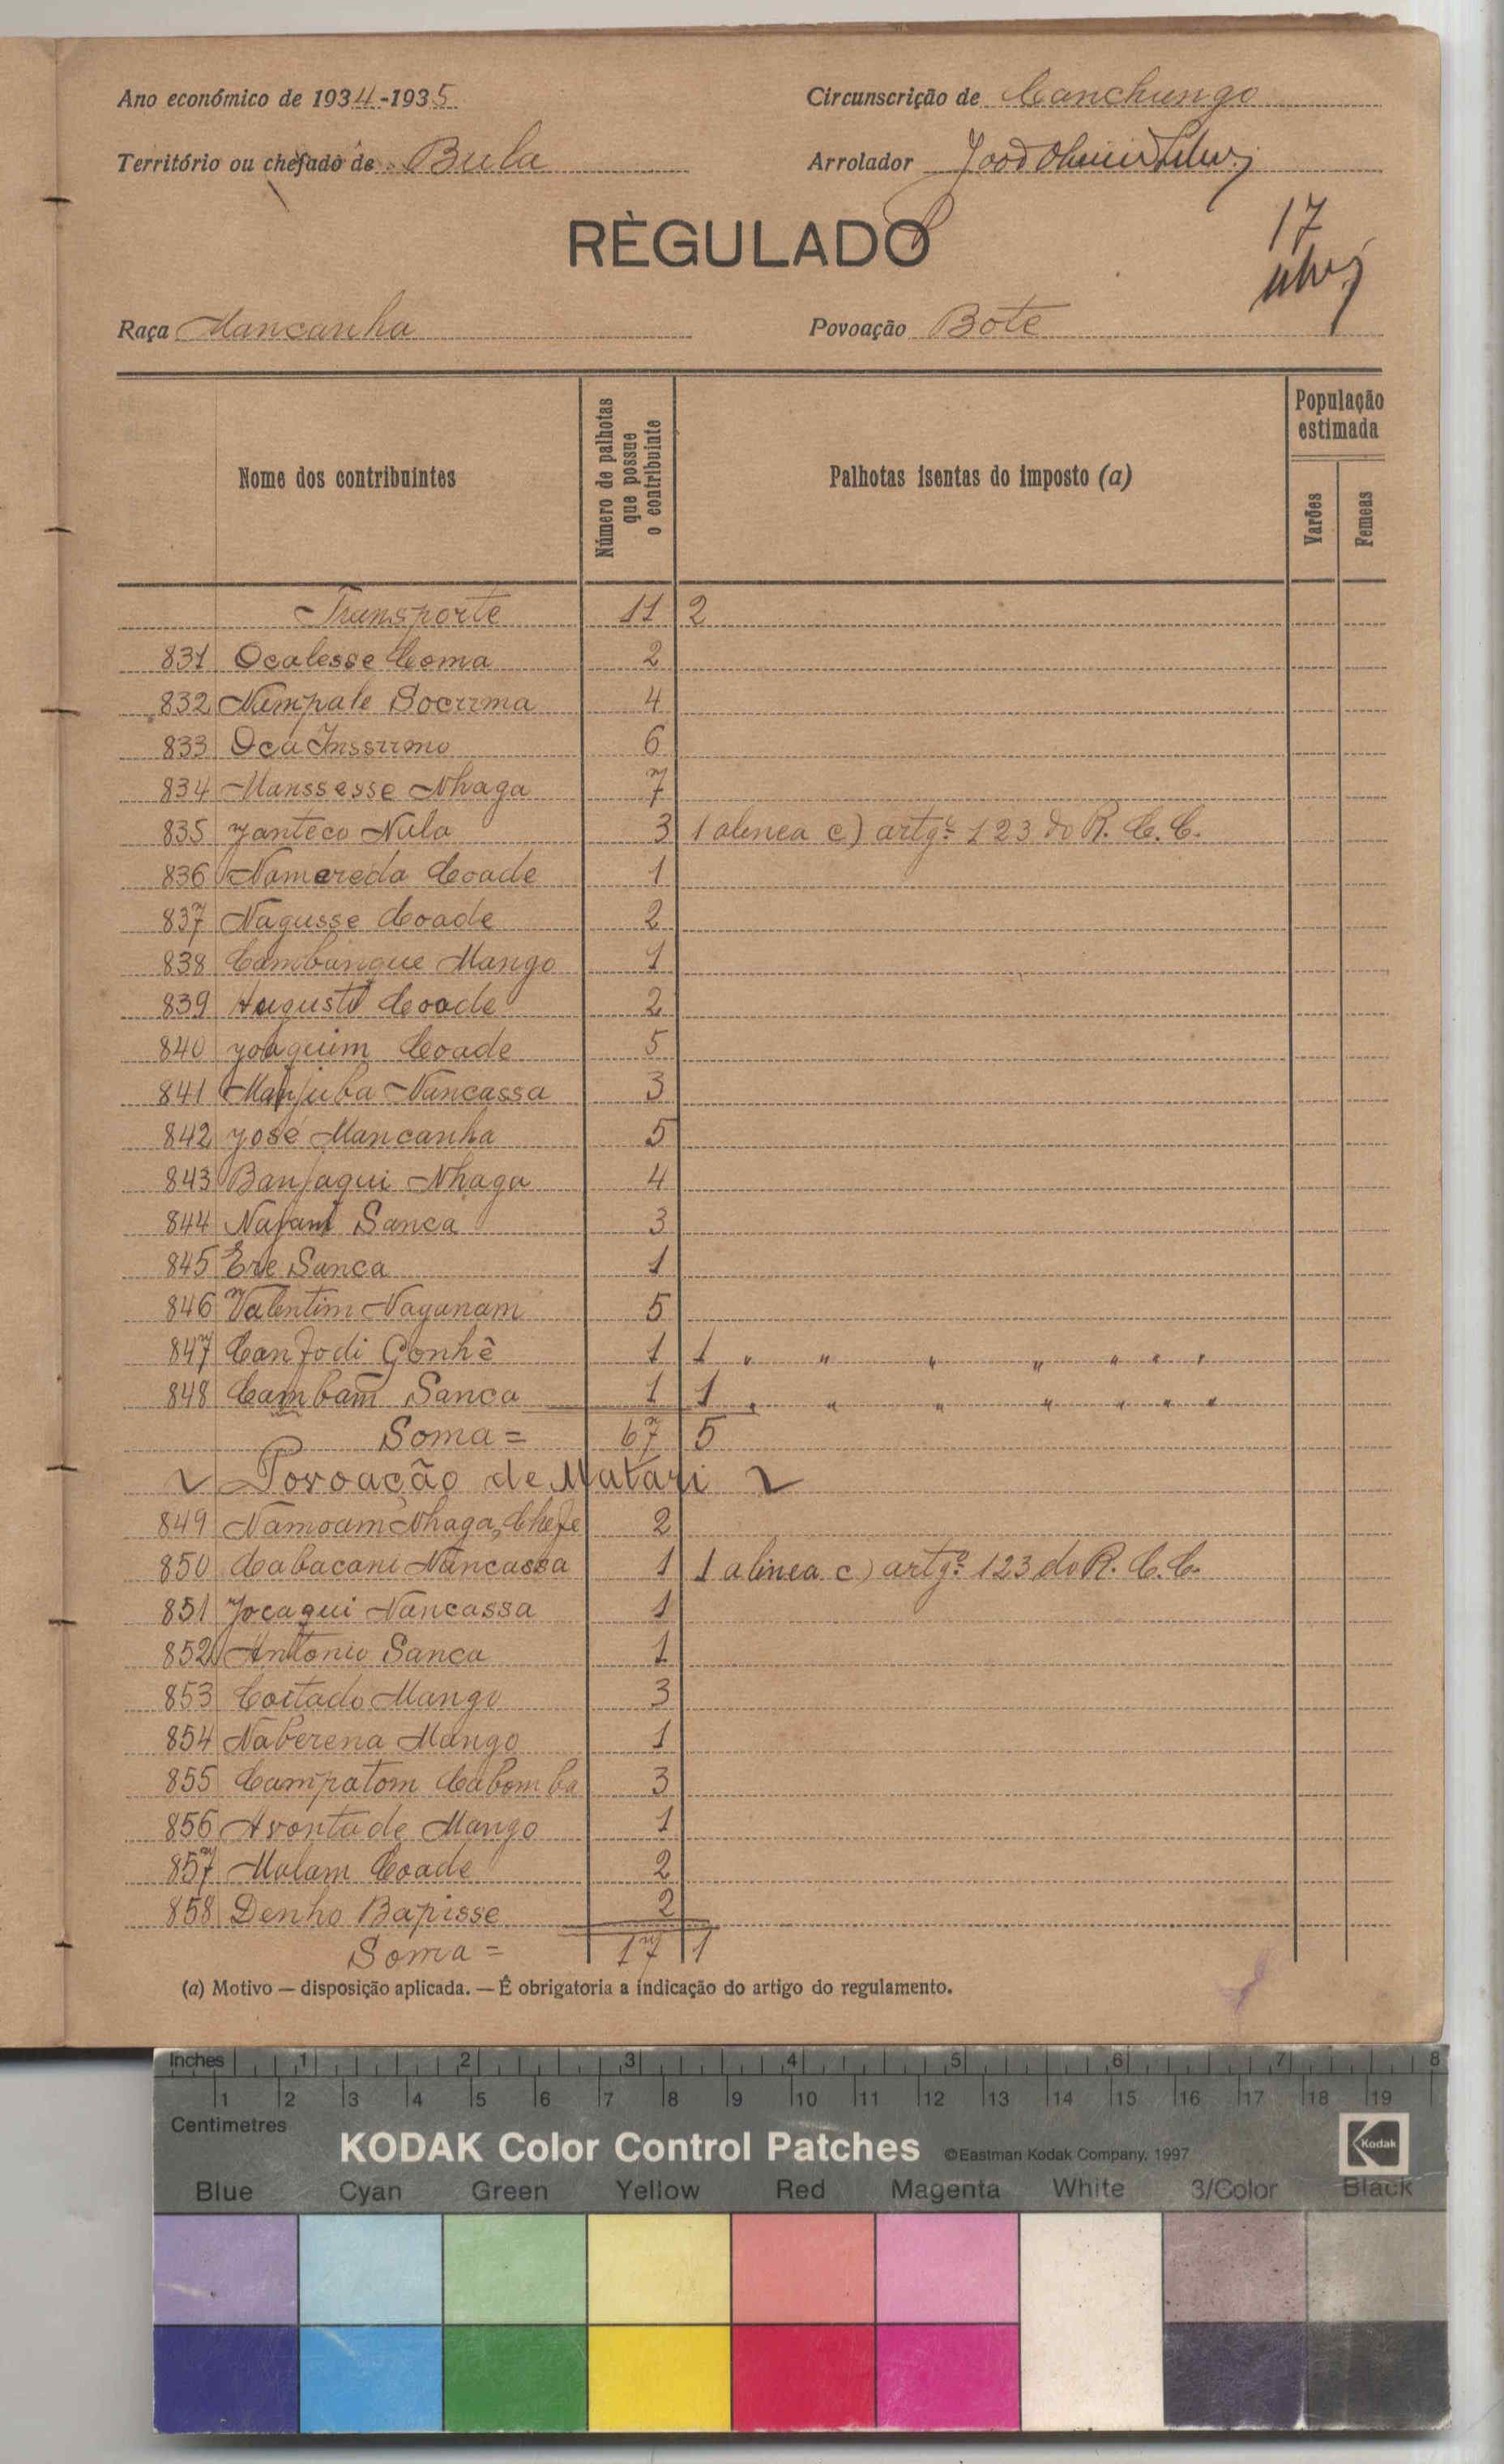 Ano económico de 1934-1935
Circunscrição de Canchungo
Território ou chefado de Bula
Arrolador
RÈGULADO
17
Raça Mancanha
Povoação Bote
Nome dos contribuintes
Número de palhotas que possue o contribuinte
Palhotas isentas do imposto (a)
População estimada
Varões
Femeas
Transporte 11 2
831 Ocalesse Coma 2
832 Nampale Socuma 4
833 Oca Inssumo 6
834 Manssesse Nhaga 7
835 Janteco Nula 3 1 alinea c) artgº 123 do R. C. C.
836 Namereda Coade 1
837 Nagusse Coade 2
838 Cambunque Mango 1
839 Augusto Coade 2
840 Joaquim Coade 5
841 Manjuba Nancassa 3
842 José Mancanha 5
843 Banjaqui Nhaga 4
844 Najam Sanca 3
845 Ere Sanca 1
846 Valentim Nayanam 5
847 Canfodi Gonhê 1 1 " " " " " " "
848 Cambam Sanca 1 1 " " " " " " "
Soma = 67 5
Povoação de Matari
849 Namoam Nhaga, Chefe 2
850 Cabacani Nancassa 1 1 alinea c) artgº 123 do R. C. C.
851 Jocaqui Nancassa 1
852 Antonio Sanca 1
853 Coitado Mango 3
854 Naberena Mango 1
855 Campatom Cabomba 3
856 Avontade Mango 1
857 Malam Coade 2
858 Denho Bapisse 2
Soma = 17 1
(a) Motivo — disposição aplicada. — É obrigatoria a indicação do artigo do regulamento.
Inches 1 2 3 4 5 6 7 8
1 2 3 4 5 6 7 8 9 10 11 12 13 14 15 16 17 18 19
Centimetres
KODAK Color Control Patches ©Eastman Kodak Company, 1997 Kodak
Blue Cyan Green Yellow Red Magenta White 3/Color Black